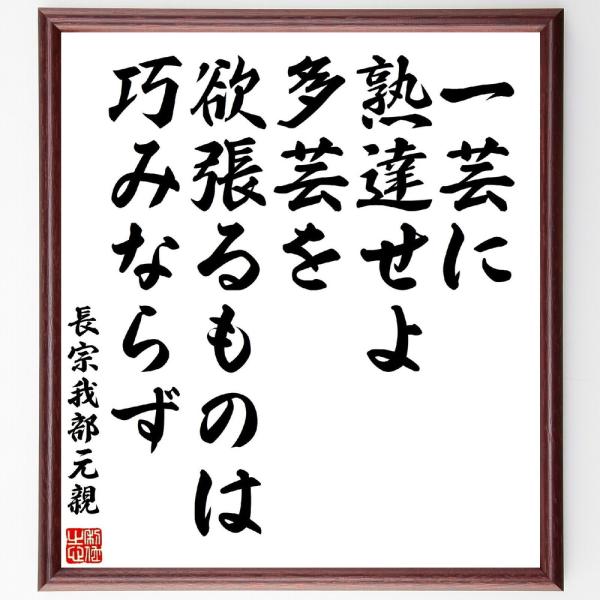 一芸に
熟達せよ
多芸を
欲張るものは
巧みならず
長宗我部元親